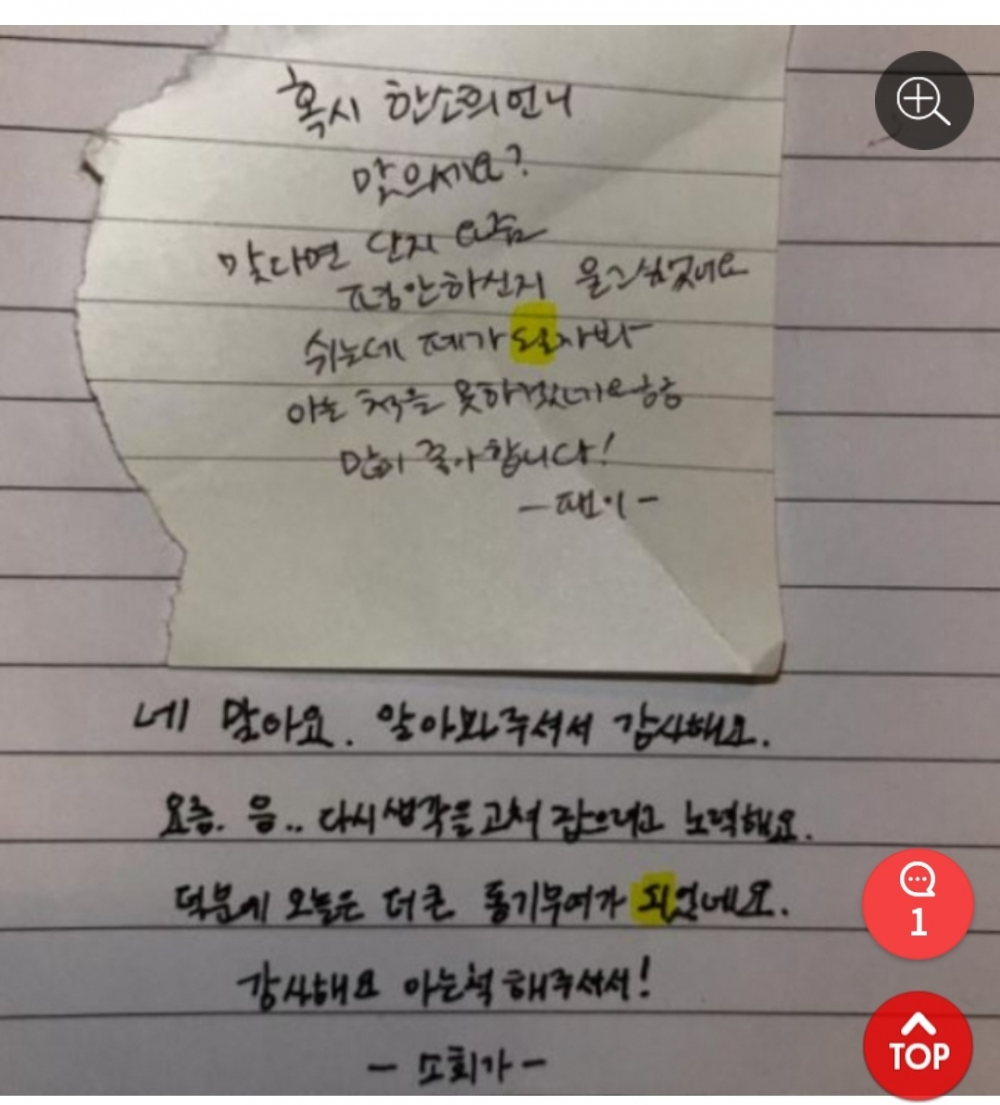 혹시 한소희언니
맞으세요?
맞다면 단지 요즘
평안하신지 묻고싶었네요
쉬는데 폐가 될까봐
아는 척을 못하겠네요ㅎㅎ
많이 좋아합니다!
- 팬이 -
네 맞아요. 알아봐주셔서 감사해요.
요즘. 음.. 다시 생각을 고쳐 잡으려고 노력해요.
덕분에 오늘은 더 큰 동기부여가 되었네요.
감사해요 아는척 해주셔서!
- 소희가 -
1
TOP